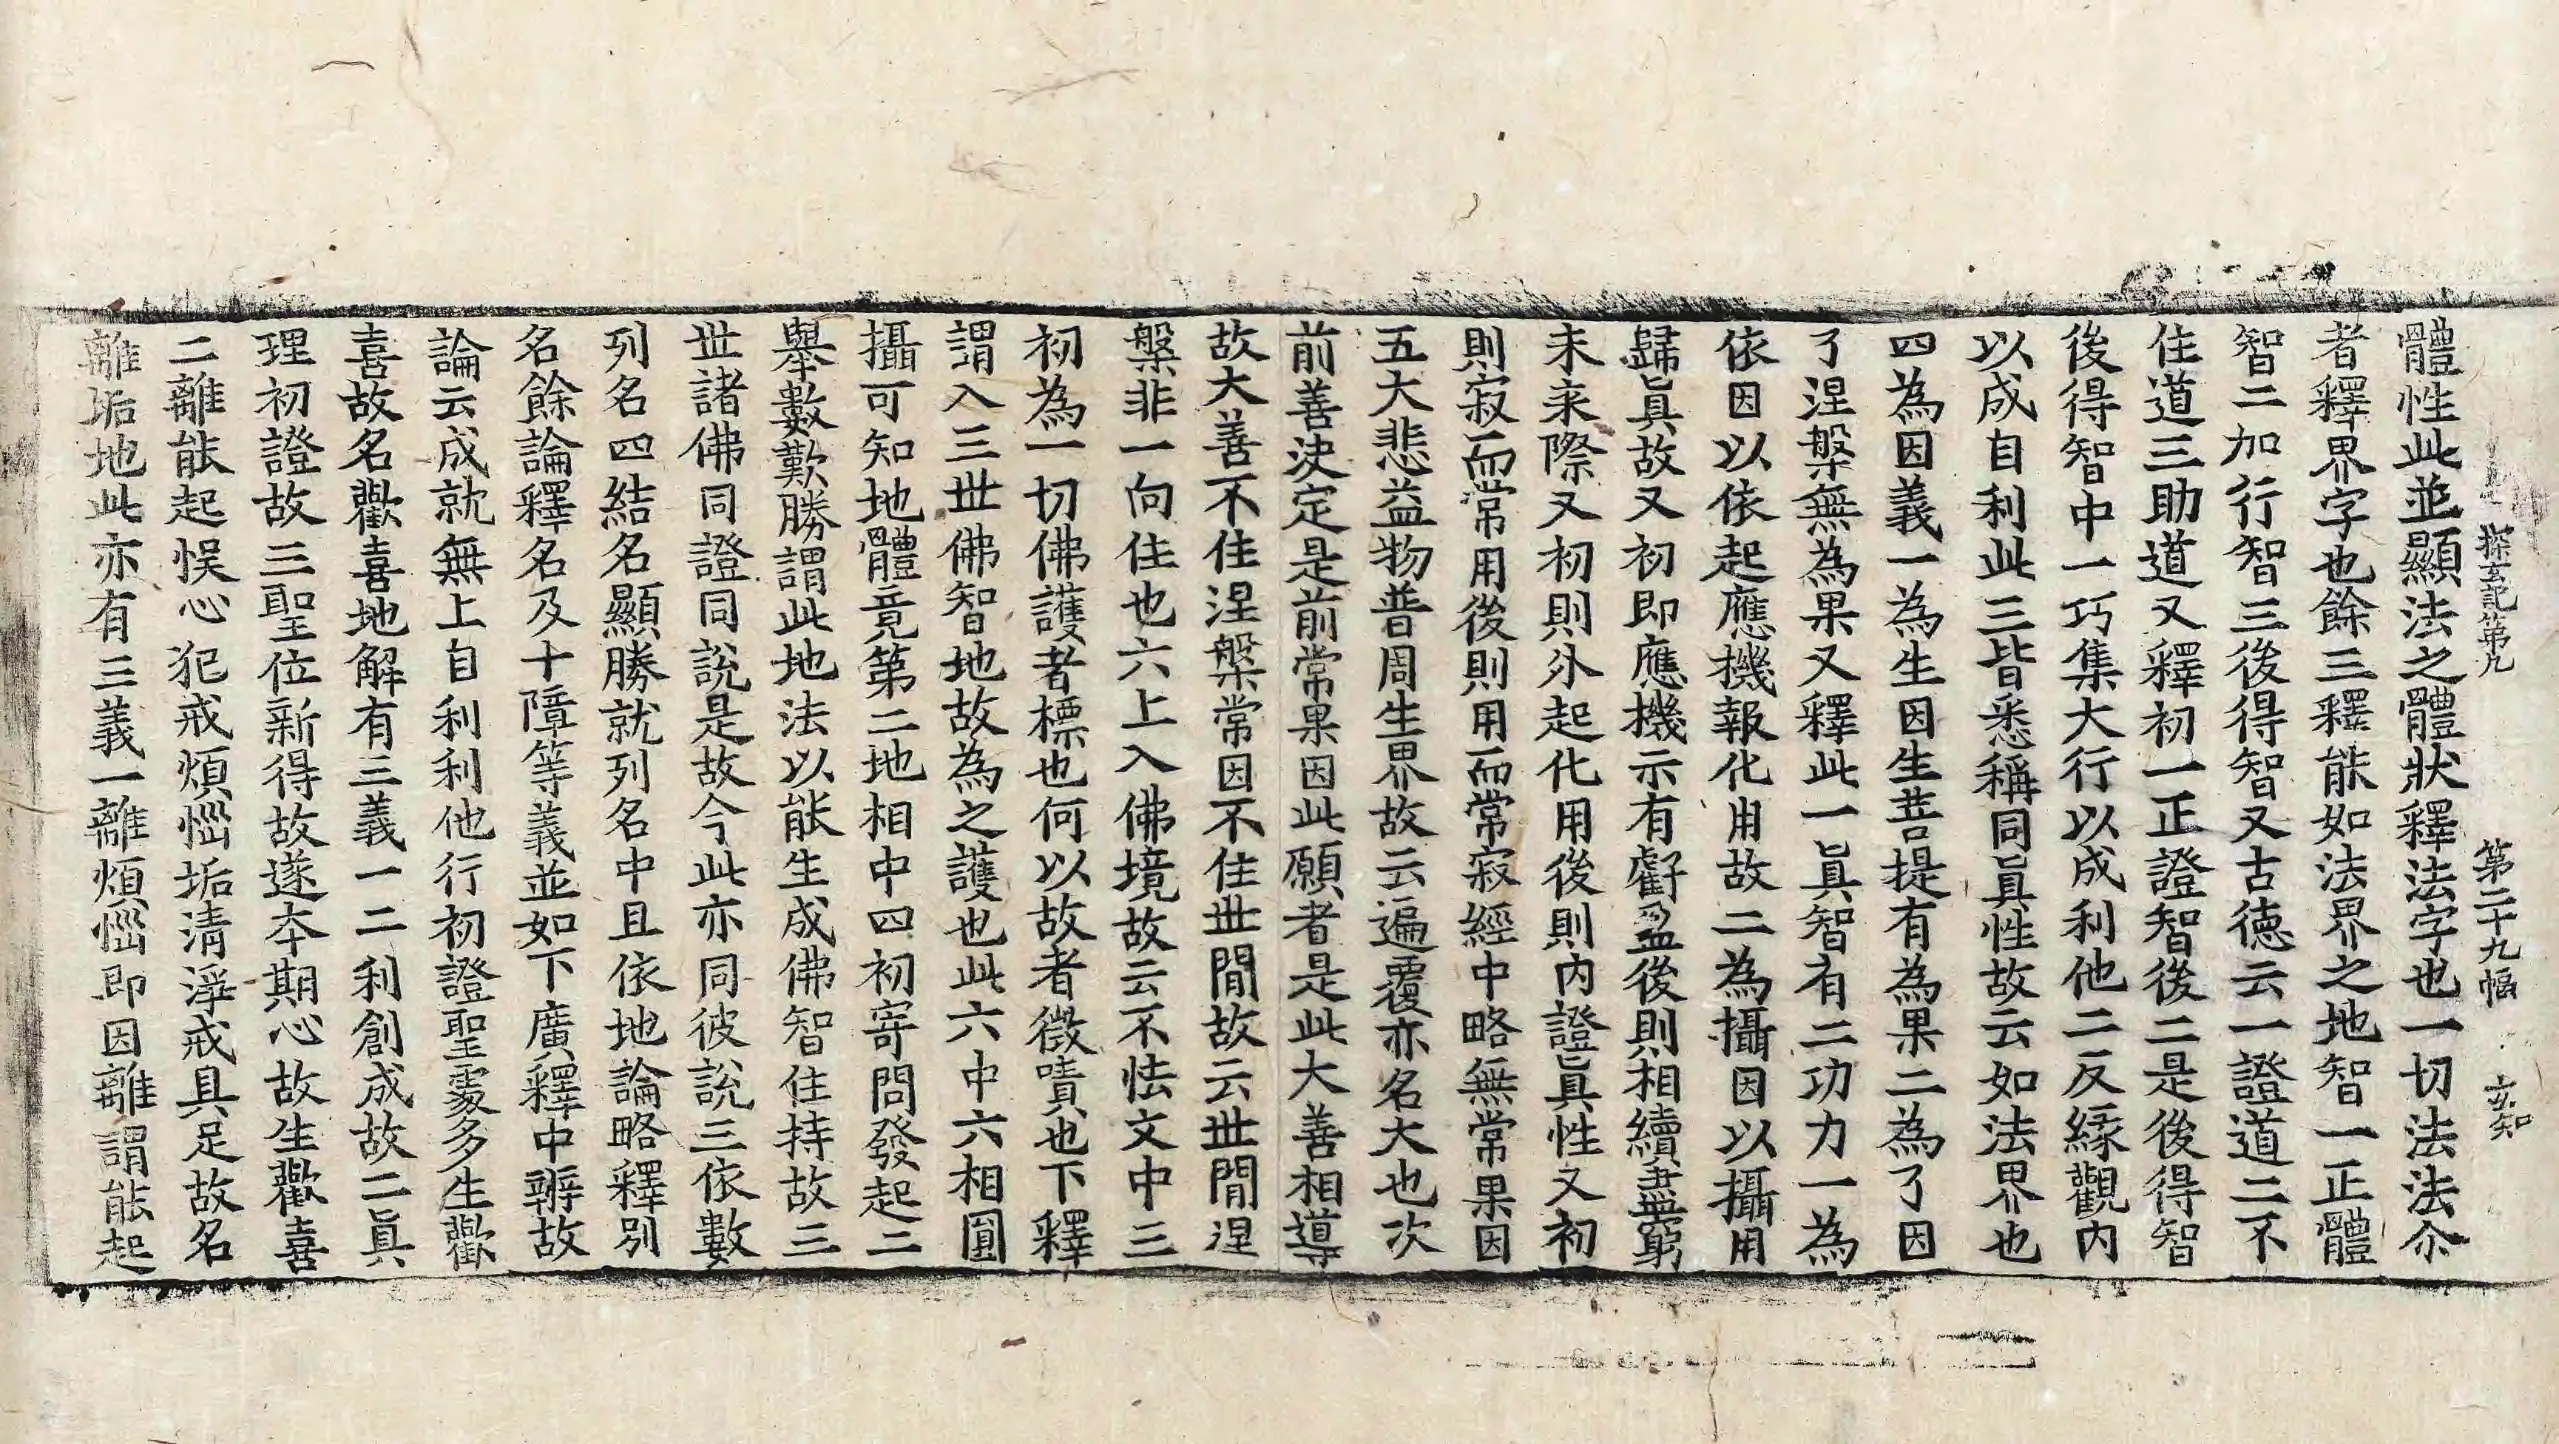 探玄記第九　第二十九幅　玄知
體性此並顯法之體狀釋法字也一切法法尒
者釋界字也餘三釋能如法界之地智一正體
智二加行智三後得智又古德云一證道二不
住道三助道又釋初一正證智後二是後得智
後得智中一巧集大行以成利他二反緣觀內
以成自利此三皆悉稱同眞性故云如法界也
四為因義一為生因生菩提有為果二為了因
了涅槃無為果又釋此一眞智有二功力一為
依因以依起應機報化用故二為攝因以攝用
歸眞故又初即應機示有虧盈後則相續盡窮
未来際又初則外起化用後則內證眞性又初
則寂而常用後則用而常寂經中略無常果因
五大悲益物普周生界故云遍覆亦名大也次
前善決定是前常果因此願者是此大善相導
故大善不住涅槃常因不住世間故云世間涅
槃非一向住也六上入佛境故云不怯文中三
初為一切佛護者標也何以故者徵嘖也下釋
謂入三世佛智地故為之護也此六中六相圓
攝可知地體竟第二地相中四初寄問發起二
舉數歎勝謂此地法以能生成佛智住持故三
世諸佛同證同說是故今此亦同彼說三依數
列名四結名顯勝就列名中且依地論略釋別
名餘論釋名及十障等義並如下廣釋中辨故
論云成就無上自利利他行初證聖處多生歡
喜故名歡喜地解有三義一二利創成故二眞
理初證故三聖位新得故遂本期心故生歡喜
二離能起悮心犯戒煩惱垢清淨戒具足故名
離垢地此亦有三義一離煩惱即因離謂能起